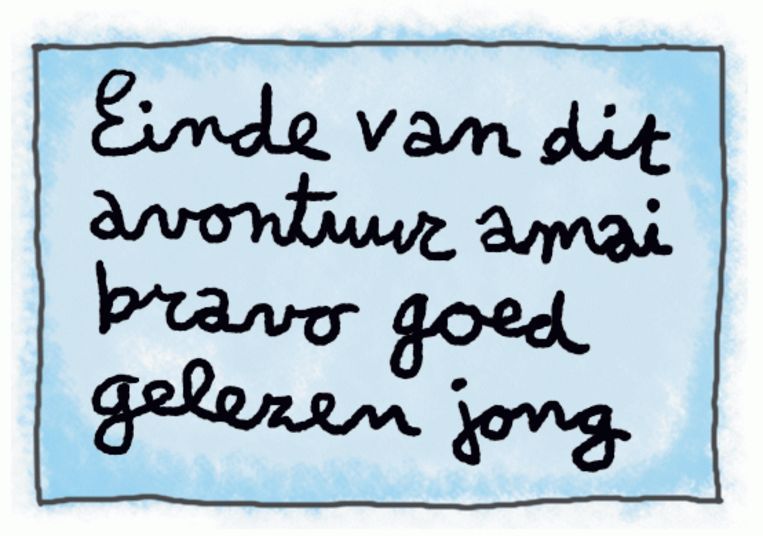 Einde van dit
avontuur amai
bravo goed
gelezen jong